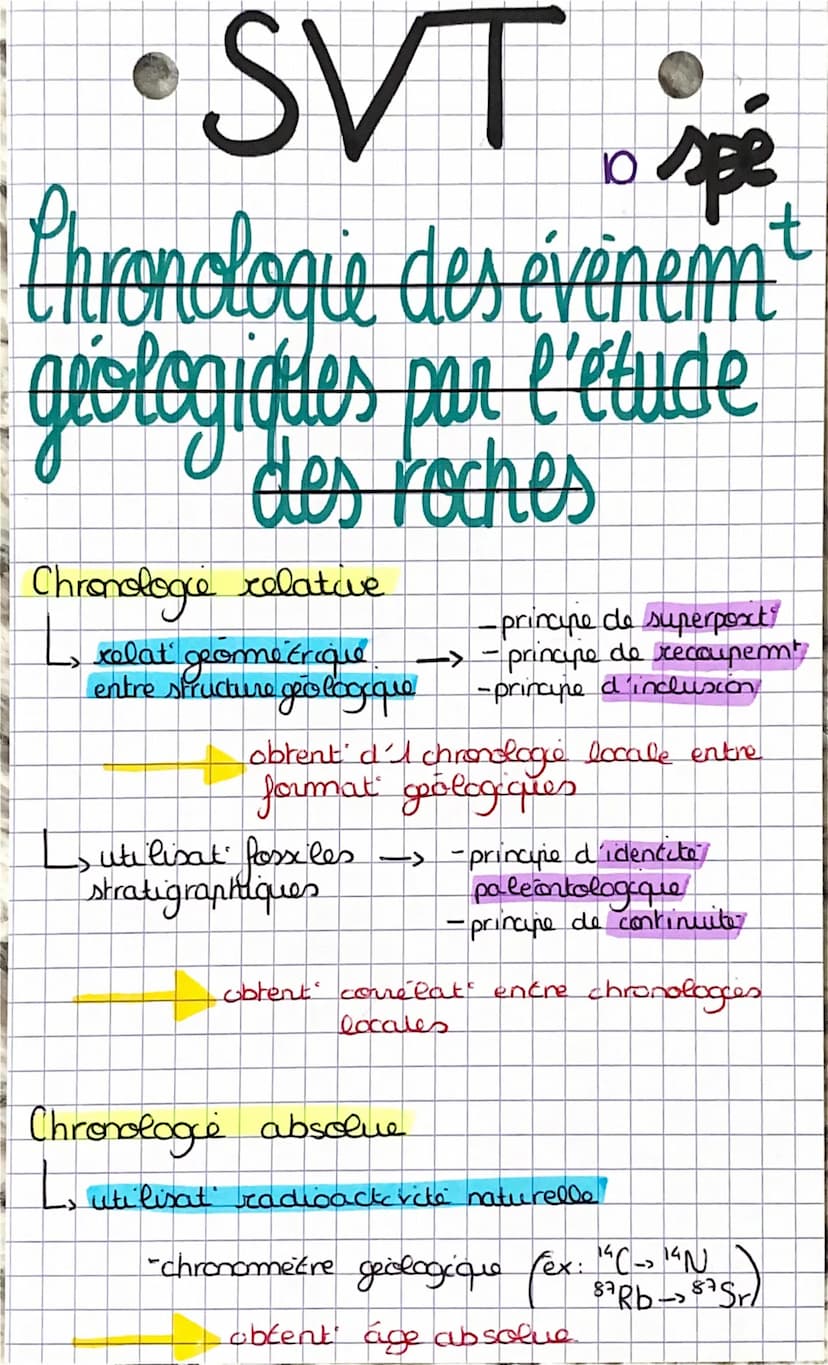 SVT
10 spé
Chronologie des événemt
géologiques par l'étude
des roches
Chronologie relative
↳ relat° géométrique → - principe de superposit°
entre structure géologique - principe de recoupemt
- principe d'inclusion
obtent° d'1 chronologie locale entre
format° géologiques
↳ utilisat° fossiles → - principe d'identité
stratigraphiques paléontologique
- principe de continuité
obtent° corrélat° entre chronologies
locales
Chronologie absolue
↳ utilisat° radioactivité naturelle
- chronomètre géologique (ex: ¹⁴C → ¹⁴N
⁸⁷Rb → ⁸⁷Sr)
obtent° âge absolue